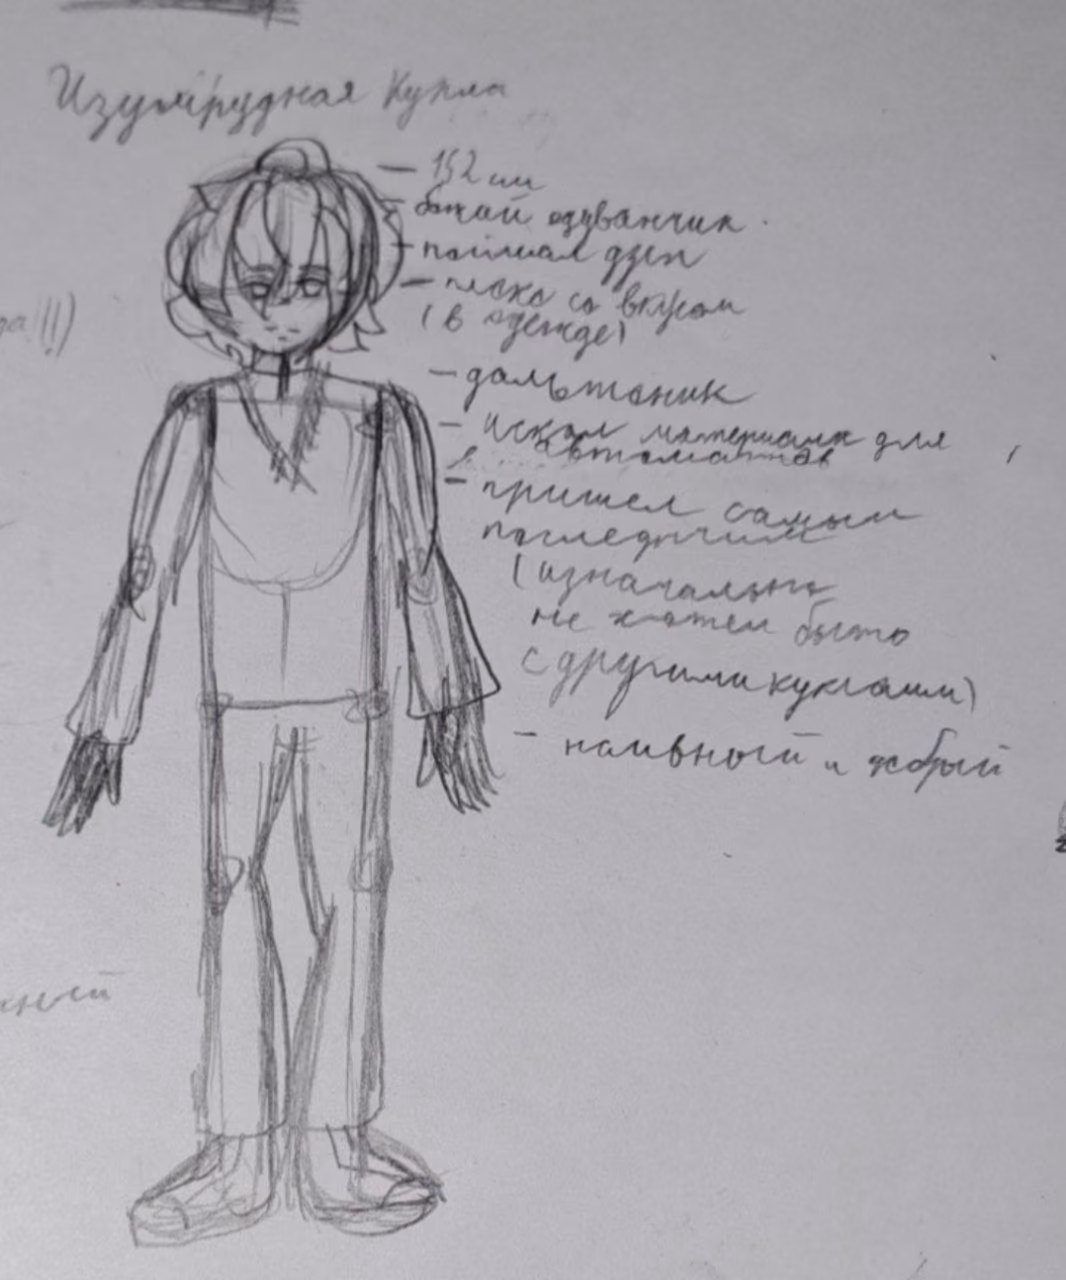 Изумрудная Кукла
— 152 см
- божий одуванчик
- поймал дзен
- плохо со вкусом
(в одежде)
- дальтоник
- искал материалы для
автоматов
- пришел самым
последним
(изначально
не хотел быть
с другими куклами)
- наивный и добрый